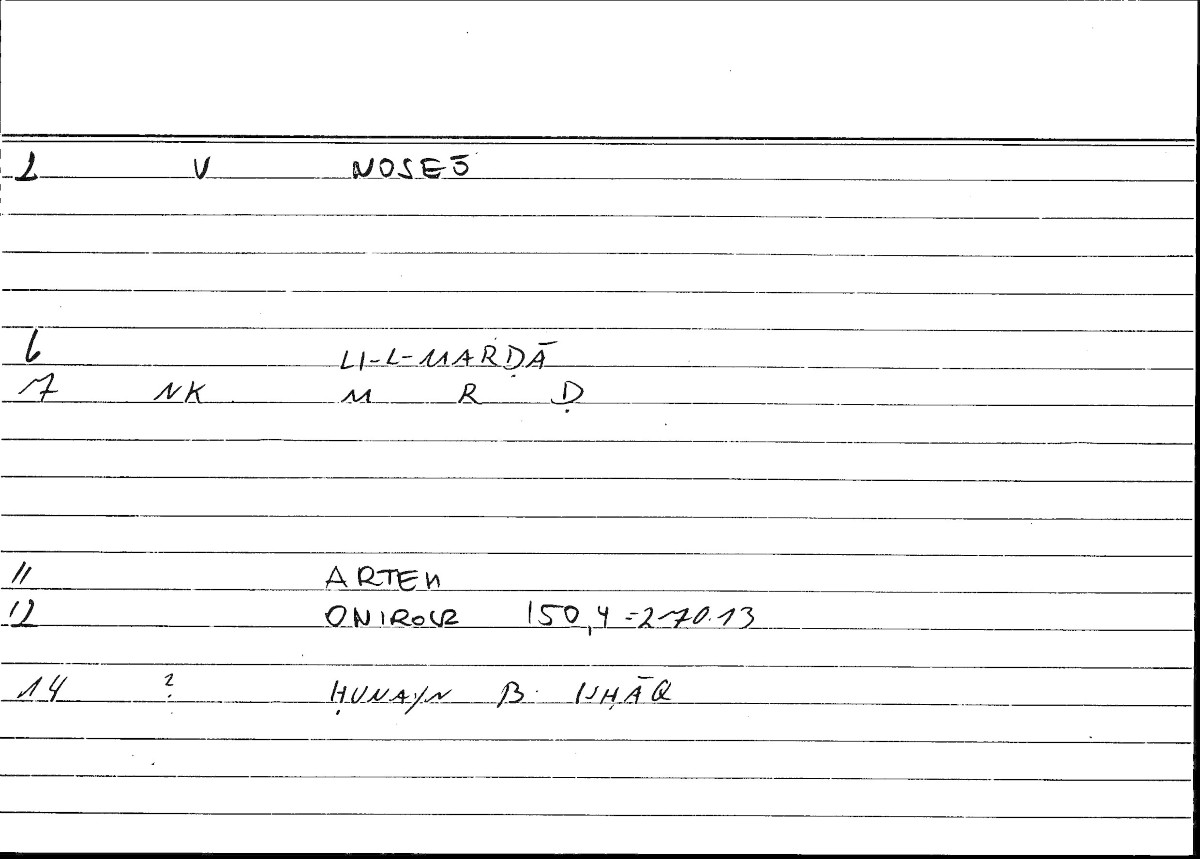 1 V NOSEŌ
6 LI-L-MARḌĀ
7 NK M R Ḍ
11 ARTEM
12 ONIROCR 150,4 = 270.13
14 ? ḤUNAYN B. ISḤĀQ